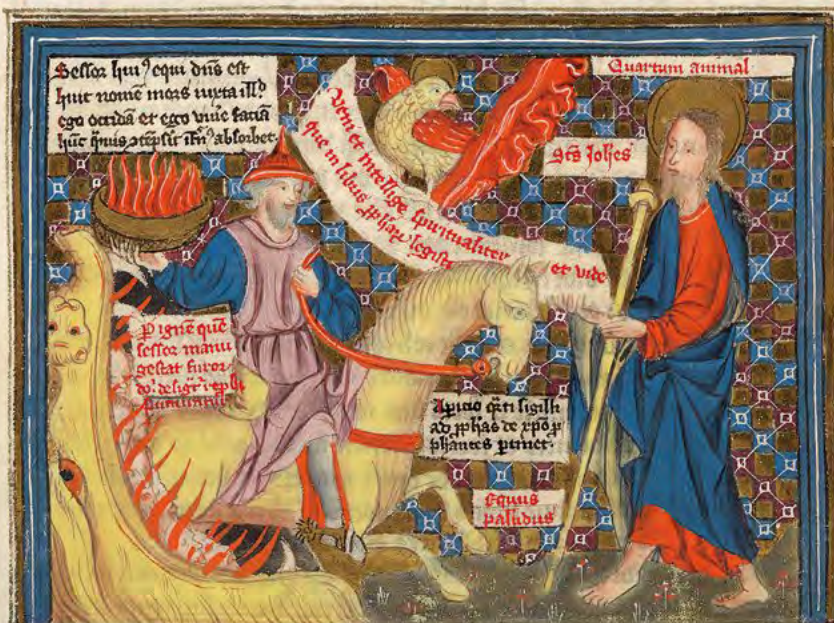 Sessor huiꝰ equi dn̄s est
huic nomē mors iuxta ill̉d
ego occidā et ego viuē faciā
hūc
absorbet.
Quartum animal
Veni et intellige spiritualiter et vide
que in libris ꝓphaꝝ legist
Scs̄ Joh̄es
ꝑ ignē quē
sessor manu
gestat furor
Aꝑicio q̄rti sigilli
ad ꝓphās de xp̄o ꝓ
ph̄antes ꝑtinet.
Equus
palidus